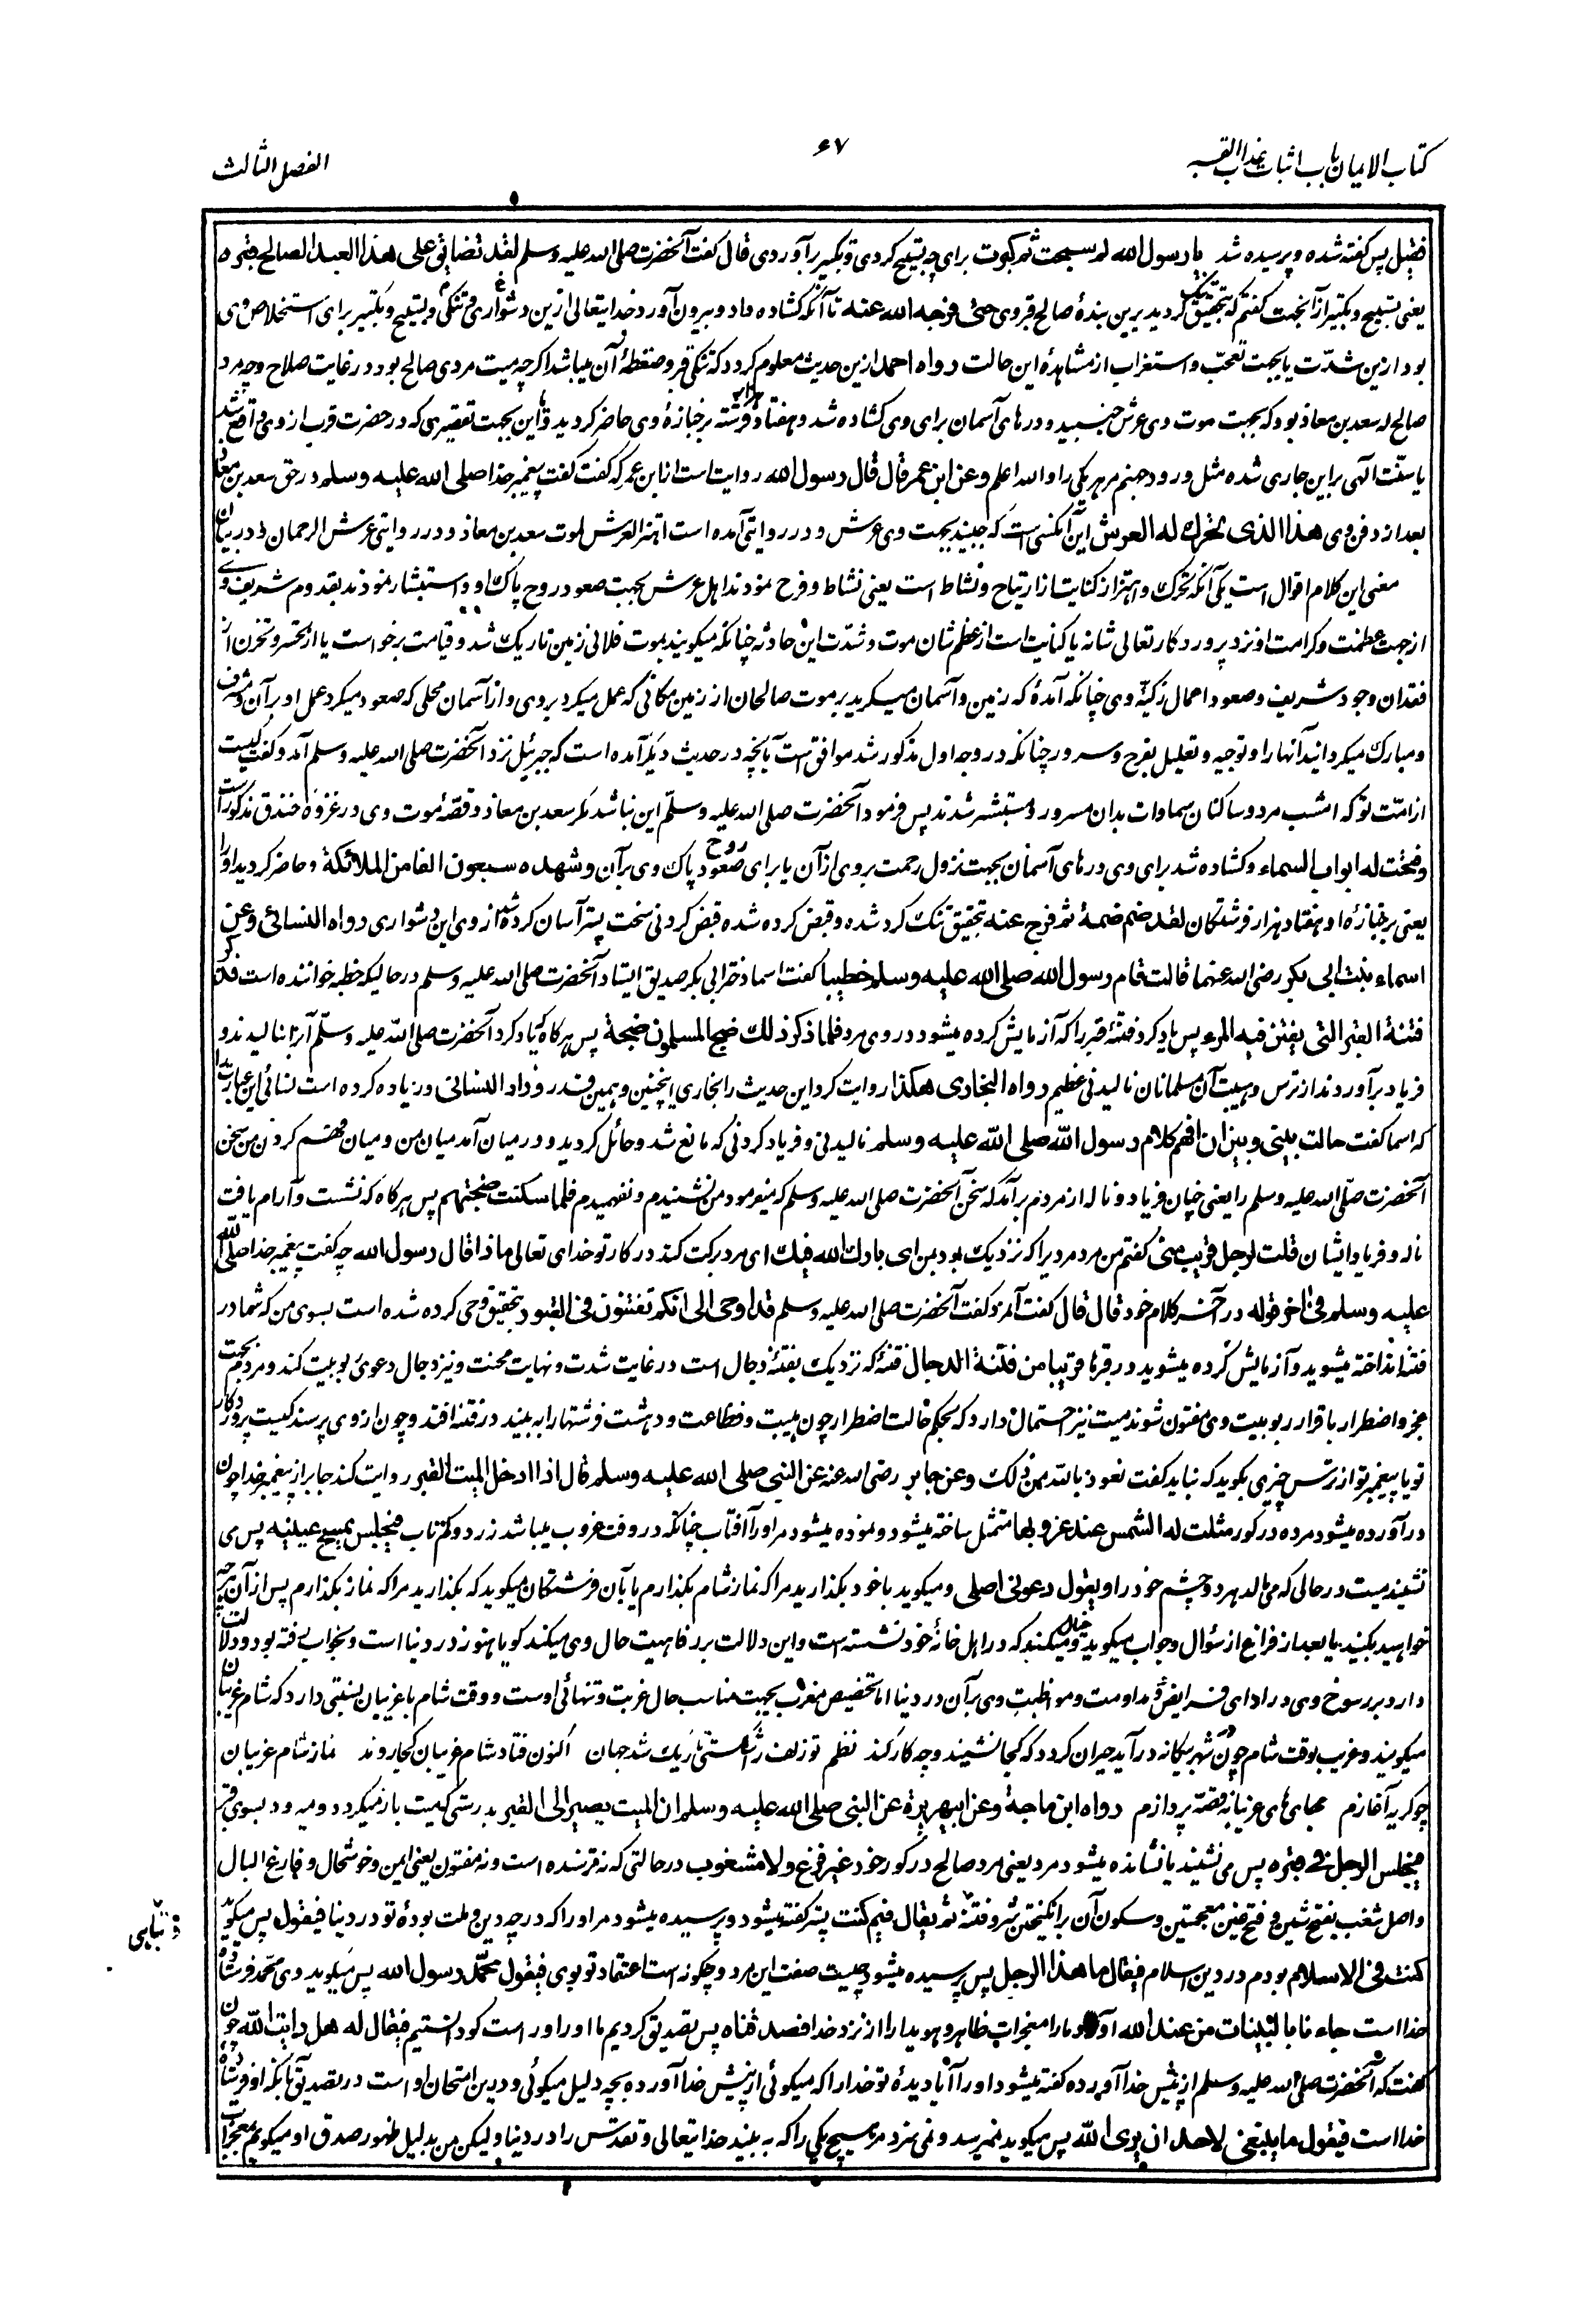 کتاب الایمان باب اثبات عذاب القبر
۶۷
الفصل الثالث
فقیل پس گفته شده و پرسیده شد یا رسول الله لم سبحت ثم کبرت برای چه تسبیح کردی و تکبیر برآوردی قال گفت آنحضرت صلی الله علیه وسلم لقد تضایق علی هذا العبد الصالح قبره
یعنی تسبیح و تکبیر از آنجهت گفتم که بتحقیق تنگ گردید برین بندهٔ صالح قبر وی حتی فرجه الله عنه تا آنکه کشاده داد و بیرون آورد خدایتعالی ازین دشواری و تنگی و تسبیح و تکبیر برای استخلاص وی
بود ازین شدّت یا بجهت تعجّب و استغراب از مشاهدهٔ این حالت رواه احمد ازین حدیث معلوم گردد که تنگی قبر و ضغطهٔ آن میباشد اگرچه میت مردی صالح بود و در غایت صلاح و چه مرد
صالح که سعد بن معاذ بود که بجهت موت وی عرش جنبید و درهای آسمان برای وی کشاده شد و هفتاد هزار فرشته بر جنازهٔ وی حاضر گردید و این بجهت تقصیری که در حضرت قرب از وی واقع شد
یا سنّت الٓهی براین جاری شده مثل ورود جهنم مر هر یکی را و الله اعلم وعن ابن عمر قال قال رسول الله روایت است از ابن عمر که گفت گفت پیغمبر خدا صلی الله علیه وسلم در حق سعد بن معاذ
بعد از دفن وی هذا الذی تحرك له العرش این آنکسی است که جنبید بجهت وی عرش و در روایتی آمده است اهتز العرش لموت سعد بن معاذ و در روایتی عرش الرحمان و در بیان
معنی این کلام اقوال است یکی آنکه تحرک و اهتزاز کنایت از ارتیاح و نشاط است یعنی نشاط و فرح نمودند اهل عرش بجهت صعود روح پاک او و استبشار نمودند بقدوم شریف وی
از جهت عظمت و کرامت او نزد پروردگار تعالی شانه یا کنایت است از عظم شان موت و شدّت این حادثه چنانکه میگویند بموت فلانی زمین تاریک شد و قیامت برخواست یا از تحسر و تحزن از
فقدان وجود شریف و صعود اعمال زکیّهٔ وی چنانکه آمده که زمین و آسمان میگرید بر موت صالحان از زمین مکانی که عمل میکرد بروی و از آسمان محلی که صعود میکرد عمل او بر آن و مشرف
و مبارک میگردانید آنها را و توجیه و تعلیل بفرح و سرور چنانکه در وجه اول مذکور شد موافق است بآنچه در حدیث دیگر آمده است که جبرئیل نزد آنحضرت صلی الله علیه وسلم آمد و گفت کیست
از امّت تو که امشب مرد و ساکنان سماوات بدان مسرور و مستبشر شدند پس فرمود آنحضرت صلی الله علیه وسلّم این نباشد مگر سعد بن معاذ و قصّهٔ موت وی در غزوهٔ خندق مذکور است
وفتحت له ابواب السماء و کشاده شد برای وی درهای آسمان بجهت نزول رحمت بروی از آن یا برای صعود روح پاک وی بر آن وشهده سبعون الفا من الملائکة و حاضر گردید او را
یعنی بر جنازهٔ او هفتاد هزار فرشتگان لقد ضم ضمة ثم فرج عنه بتحقیق تنگ گرد شده و قبض کرده شده قبض کردنی سخت پستر آسان کرده شد از وی این دشواری رواه النسائی وعن
اسماء بنت ابی بکر رضی الله عنهما قالت قام رسول الله صلی الله علیه وسلم خطیبا گفت اسما دختر ابی بکر صدیق ایستاد آنحضرت صلی الله علیه وسلم در حالیکه خطبه خواننده است فذکر
فتنة القبر التی یفتن فیه المرء پس یاد کرد فتنهٔ قبر را که آزمایش کرده میشود در وی مرد فلما ذکر ذلك ضج المسلمون ضجة پس هرگاه که یاد کرد آنحضرت صلی الله علیه وسلّم آنرا بنالیدند و
فریاد برآوردند از ترس و هیبت آن مسلمانان نالیدنی عظیم رواه البخاری هکذا روایت کرد این حدیث را بخاری اینچنین و همین قدر وزاد النسائی و زیاده کرده است نسائی این عبارت را
که اسما گفت حالت بینی وبین ان افهم کلام رسول الله صلی الله علیه وسلم نالیدنی و فریاد کردنی که مانع شد و حائل گردید و درمیان آمد میان من و میان فهم کردن من سخن
آنحضرت صلّی الله علیه وسلم را یعنی چنان فریاد و ناله از مردم برآمد که سخن آنحضرت صلی الله علیه وسلم که میفرمود من نشنیدم و نفهمیدم فلما سکنت ضجتهم پس هرگاه که نشست و آرام یافت
ناله و فریاد ایشان قلت لرجل قریب منی گفتم من مر مردیرا که نزدیک بود بمن ای بارك الله فیك ای مرد برکت کند در کار تو خدای تعالی ماذا قال رسول الله چه گفت پیغمبر خدا صلی الله
علیه وسلم فی اخر قوله در آخر کلام خود قال قال گفت آنمرد گفت آنحضرت صلی الله علیه وسلم قد اوحی الی انکم تفتنون فی القبور بتحقیق وحی کرده شده است بسوی من که شما در
فتنه انداخته میشوید و آزمایش کرده میشوید در قبرها قریبا من فتنة الدجال فتنهٔ که نزدیک بفتنهٔ دجال است در غایت شدت و نهایت محنت و نیز دجال دعویٔ ربوبیت کند و مردم بجهت
عجز و اضطرار باقرار ربوبیت وی مفتون شوند میت نیز احتمال دارد که بحکم حالت اضطرار چون هیبت و فظاعت و دهشت فرشتها را به بیند در فتنه افتد و چون از وی پرسند کیست پروردگار
تو یا پیغمبر تو از ترس چیزی بگوید که نباید گفت نعوذ بالله من ذلک وعن جابر رضی الله عنه عن النبی صلی الله علیه وسلم قال اذا ادخل المیت القبر روایت کند جابر از پیغمبر خدا چون
درآورده میشود مرده در گور مثلت له الشمس عند غروبها متمثل ساخته میشود و نموده میشود مر او را آفتاب چنانکه در وقت غروب میباشد زرد و کم تاب فیجلس یمسح عینیه پس می
نشیند میت در حالی که می مالد هر دو چشم خود را ویقول دعونی اصلی و میگوید با خود بگذارید مرا که نماز شام بگذارم یا بآن فرشتگان میگوید که بگذارید مرا که نماز بگذارم پس از آن هر چه
خواهید بکنید یا بعد از فراغ از سؤال و جواب میگوید و خیال میکند که در اهل خانهٔ خود نشسته است و این دلالت بر رفاهیت حال وی میکند گویا هنوز در دنیا است و بخواب رفته بود و دلالت
دارد بر رسوخ وی در ادای فرایض و مداومت و مواظبت وی بر آن در دنیا اما تخصیص مغرب بجهت مناسب حال غربت و تنهائی اوست و وقت شام با غریبان نسبتی دارد که شام غریبان
میگویند و غریب بوقت شام چون در شهر بیگانه درآید حیران گردد که کجا نشیند و چه کار کند نظم تو زلف را شکستی تاریک شد جهان اکنون فتاد شام غریبان کجا روند نماز شام غریبان
چو گریه آغازم بهای های غریبانه قصّه پردازم رواه ابن ماجة وعن ابیهریرة عن النبی صلی الله علیه وسلم ان المیت یصیر الی القبر بدرستی که میت باز میگردد و میرود بسوی قبر
فیجلس الرجل فی قبره پس می نشیند یا نشانده میشود مرد یعنی مرد صالح در گور خود غیر فزع ولا مشغوب در حالتی که نه ترسنده است و نه مفتون یعنی ایمن و خوشحال و فارغ البال
واصل شغب بفتح شین و فتح غین معجمتین و سکون آن برانگیختن شر و فتنه ثم یقال فیم کنت پستر گفته میشود و پرسیده میشود مر او را که در چه دین و ملت بودهٔ تو در دنیا فیقول پس میگوید
کنت فی الاسلام بودم در دین اسلام فیقال ما هذا الرجل پس پرسیده میشود چیست صفت این مرد و چگونه است اعتماد تو بوی فیقول محمّد رسول الله پس میگوید وی محمد فرستاده
خدا است جاءنا بالبینات من عند الله آورد ما را معجزات ظاهر و هویدا را از نزد خدا فصدقناه پس تصدیق کردیم ما او را و راست گو دانستیم فیقال له هل رایت الله چون
گفت که آنحضرت صلی الله علیه وسلم از پیش خدا آورده گفته میشود او را آیا دیدهٔ تو خدا را که میگوئی از پیش خدا آورده بچه دلیل میگوئی و درین امتحان او است در تصدیق بآنکه او فرستاده
خدا است فیقول ما ینبغی لاحد ان یری الله پس میگوید نمیرسد و نمی سزد مر هیچ یکی را که به بیند خدایتعالی و تقدّس را در دنیا و لیکن من بدلیل ظهور صدق او میگویم بمعجزات